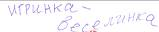 игринка -
веселинка